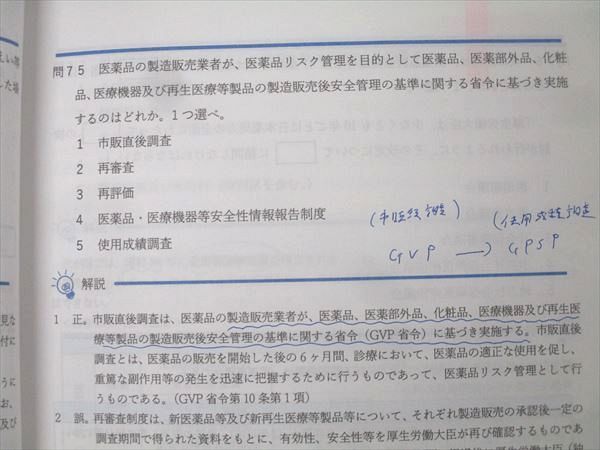 問75 医薬品の製造販売業者が、医薬品リスク管理を目的として医薬品、医薬部外品、化粧
品、医療機器及び再生医療等製品の製造販売後安全管理の基準に関する省令に基づき実施
するのはどれか。1つ選べ。
1 市販直後調査
2 再審査
3 再評価
4 医薬品・医療機器等安全性情報報告制度
5 使用成績調査
(市販後調査) (使用成績調査
GVP → GPSP
解説
1 正。市販直後調査は、医薬品の製造販売業者が、医薬品、医薬部外品、化粧品、医療機器及び再生医
療等製品の製造販売後安全管理の基準に関する省令（GVP省令）に基づき実施する。市販直後
調査とは、医薬品の販売を開始した後の6ヶ月間、診療において、医薬品の適正な使用を促し、
重篤な副作用等の発生を迅速に把握するために行うものであって、医薬品リスク管理として行
うものである。（GVP省令第10条第1項）
2 誤。再審査制度は、新医薬品等及び新再生医療等製品等について、それぞれ製造販売の承認後一定の
調査期間で得られた資料をもとに、有効性、安全性等を厚生労働大臣が再び確認するものであ